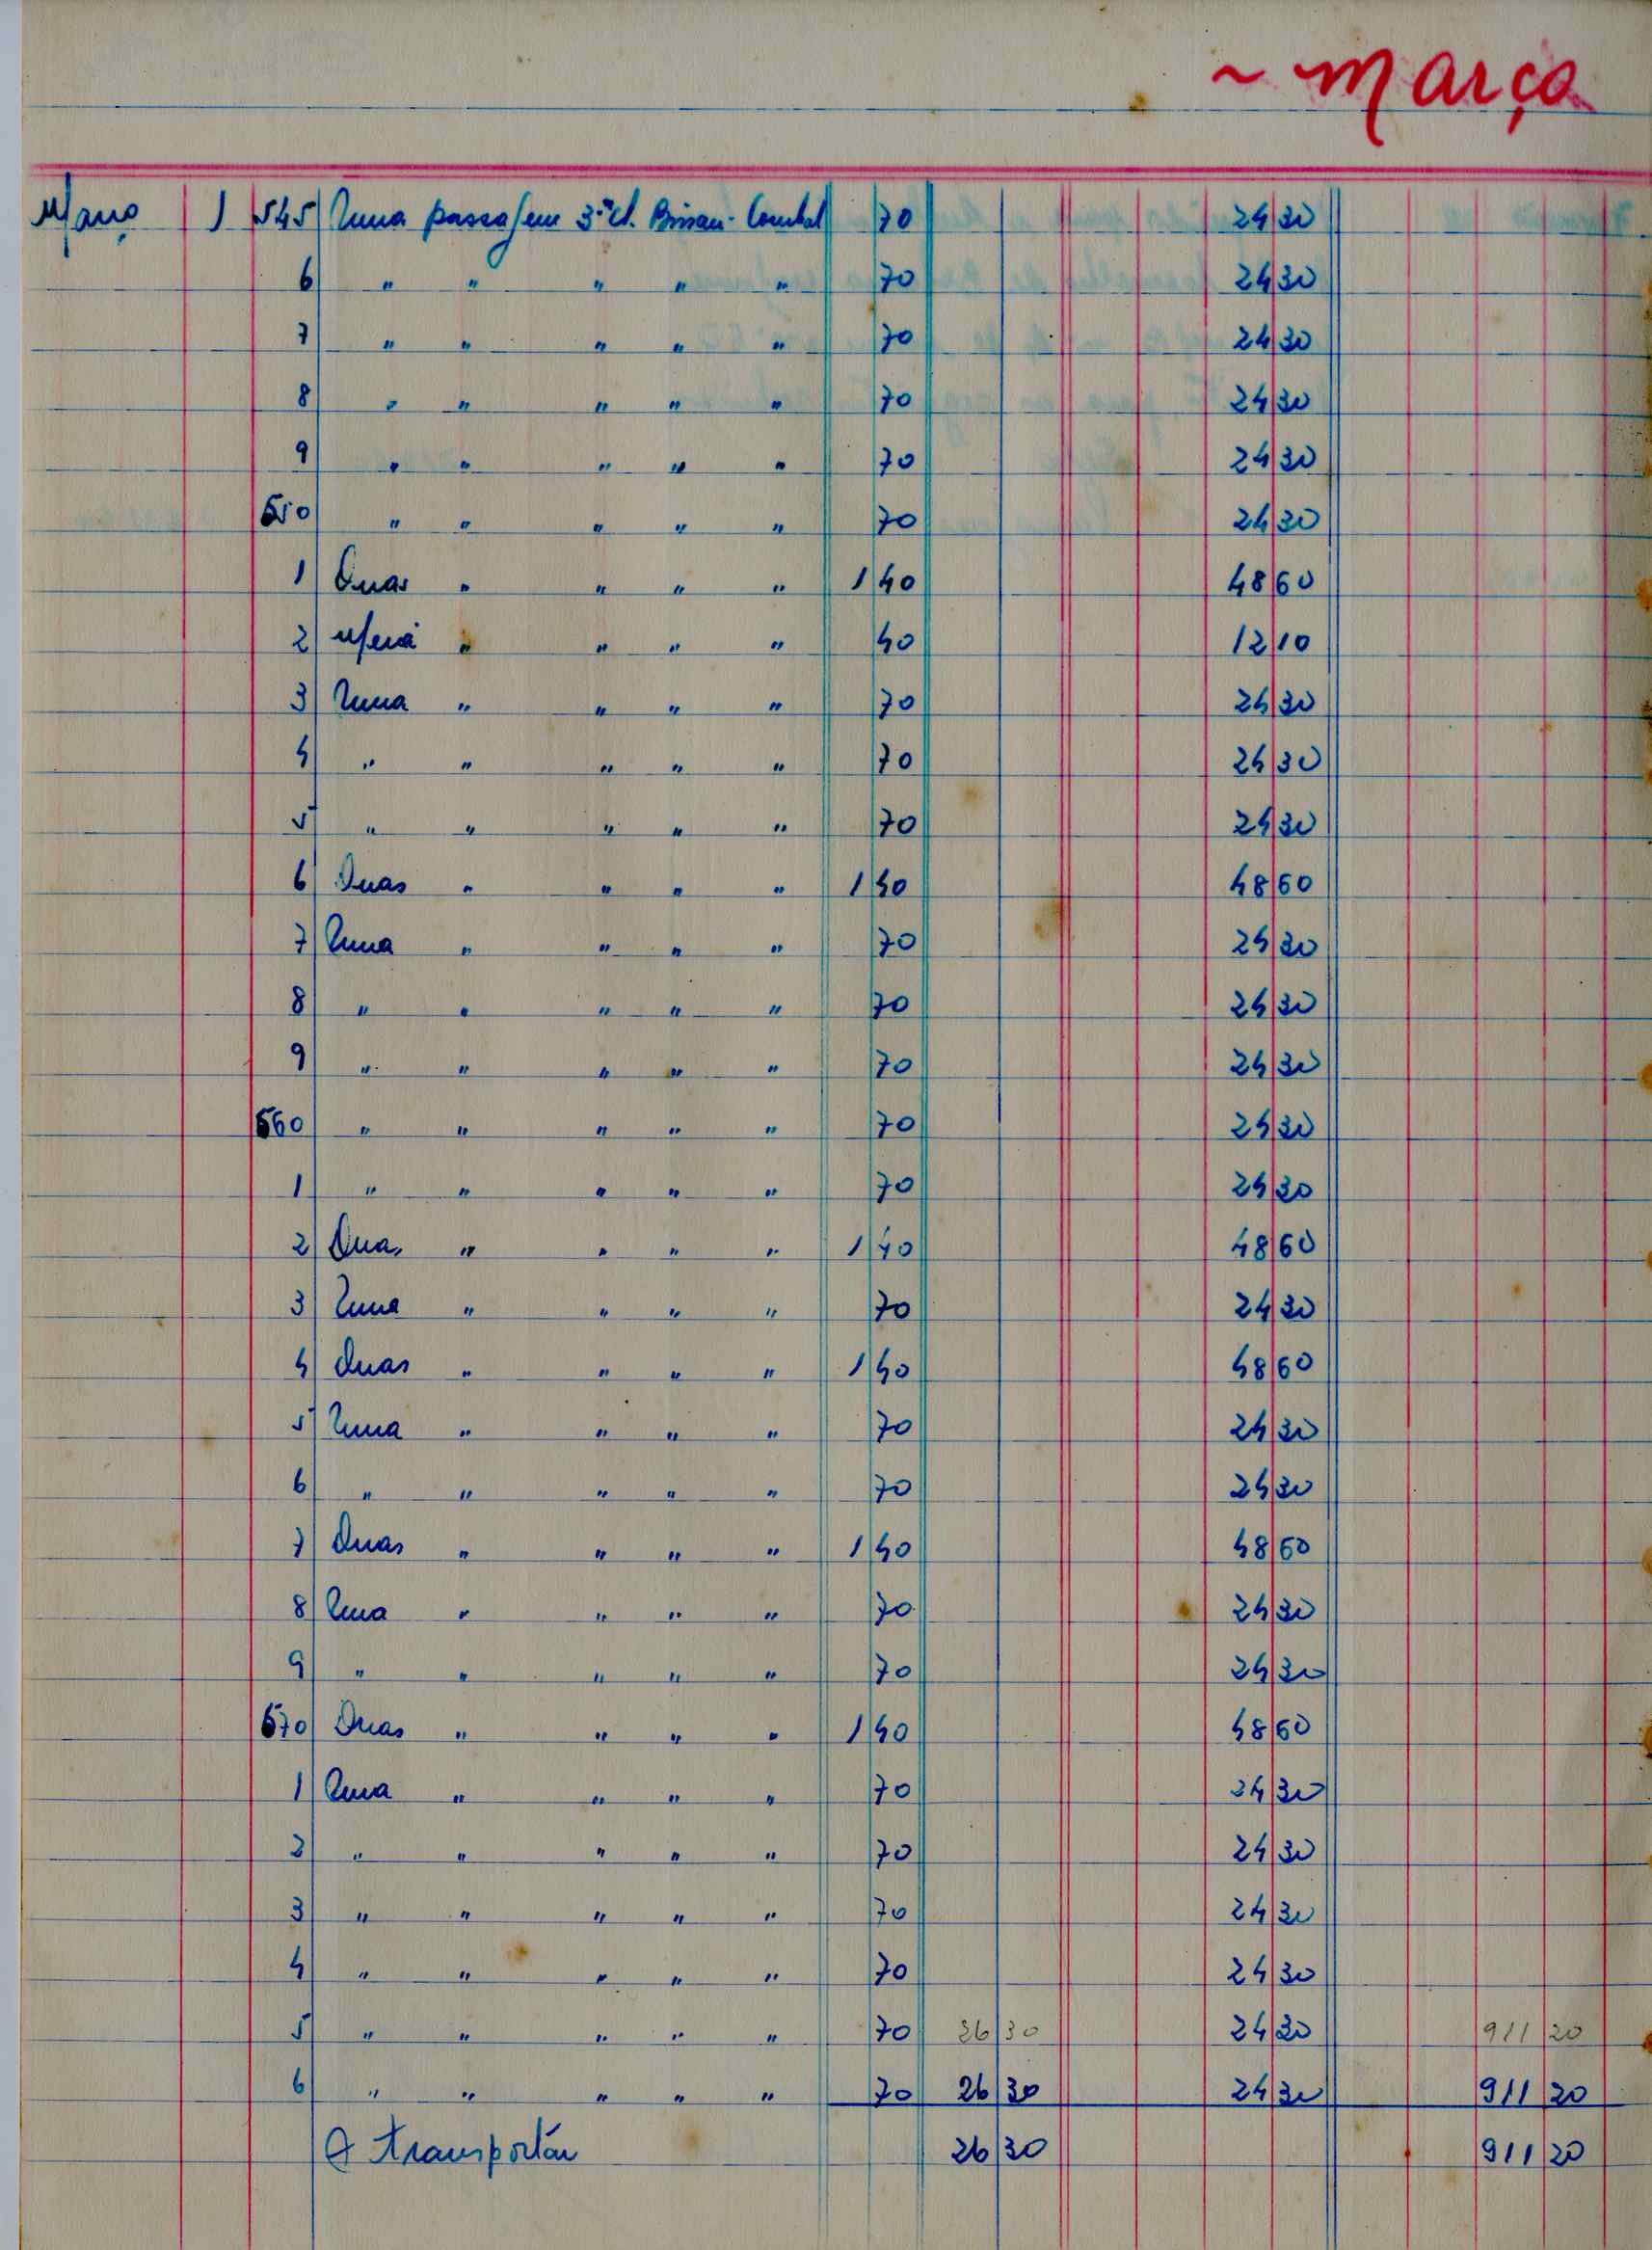 ~ Março
Março 1 545 Uma passagem 3ª cl. Bissau-Cumbal 70 24 30
6 " " " " " 70 24 30
7 " " " " " 70 24 30
8 " " " " " 70 24 30
9 " " " " " 70 24 30
550 " " " " " 70 24 30
1 Duas " " " " 1 40 48 60
2 Meia " " " " 40 12 10
3 Uma " " " " 70 24 30
4 " " " " " 70 24 30
5 " " " " " 70 24 30
6 Duas " " " " 1 40 48 60
7 Uma " " " " 70 24 30
8 " " " " " 70 24 30
9 " " " " " 70 24 30
560 " " " " " 70 24 30
1 " " " " " 70 24 30
2 Duas " " " " 1 40 48 60
3 Uma " " " " 70 24 30
4 Duas " " " " 1 40 48 60
5 Uma " " " " 70 24 30
6 " " " " " 70 24 30
7 Duas " " " " 1 40 48 60
8 Uma " " " " 70 24 30
9 " " " " " 70 24 30
570 Duas " " " " 1 40 48 60
1 Uma " " " " 70 24 30
2 " " " " " 70 24 30
3 " " " " " 70 24 30
4 " " " " " 70 24 30
5 " " " " " 70 26 30 24 30 911 20
6 " " " " " 70 26 30 24 30 911 20
A transportar 26 30 911 20